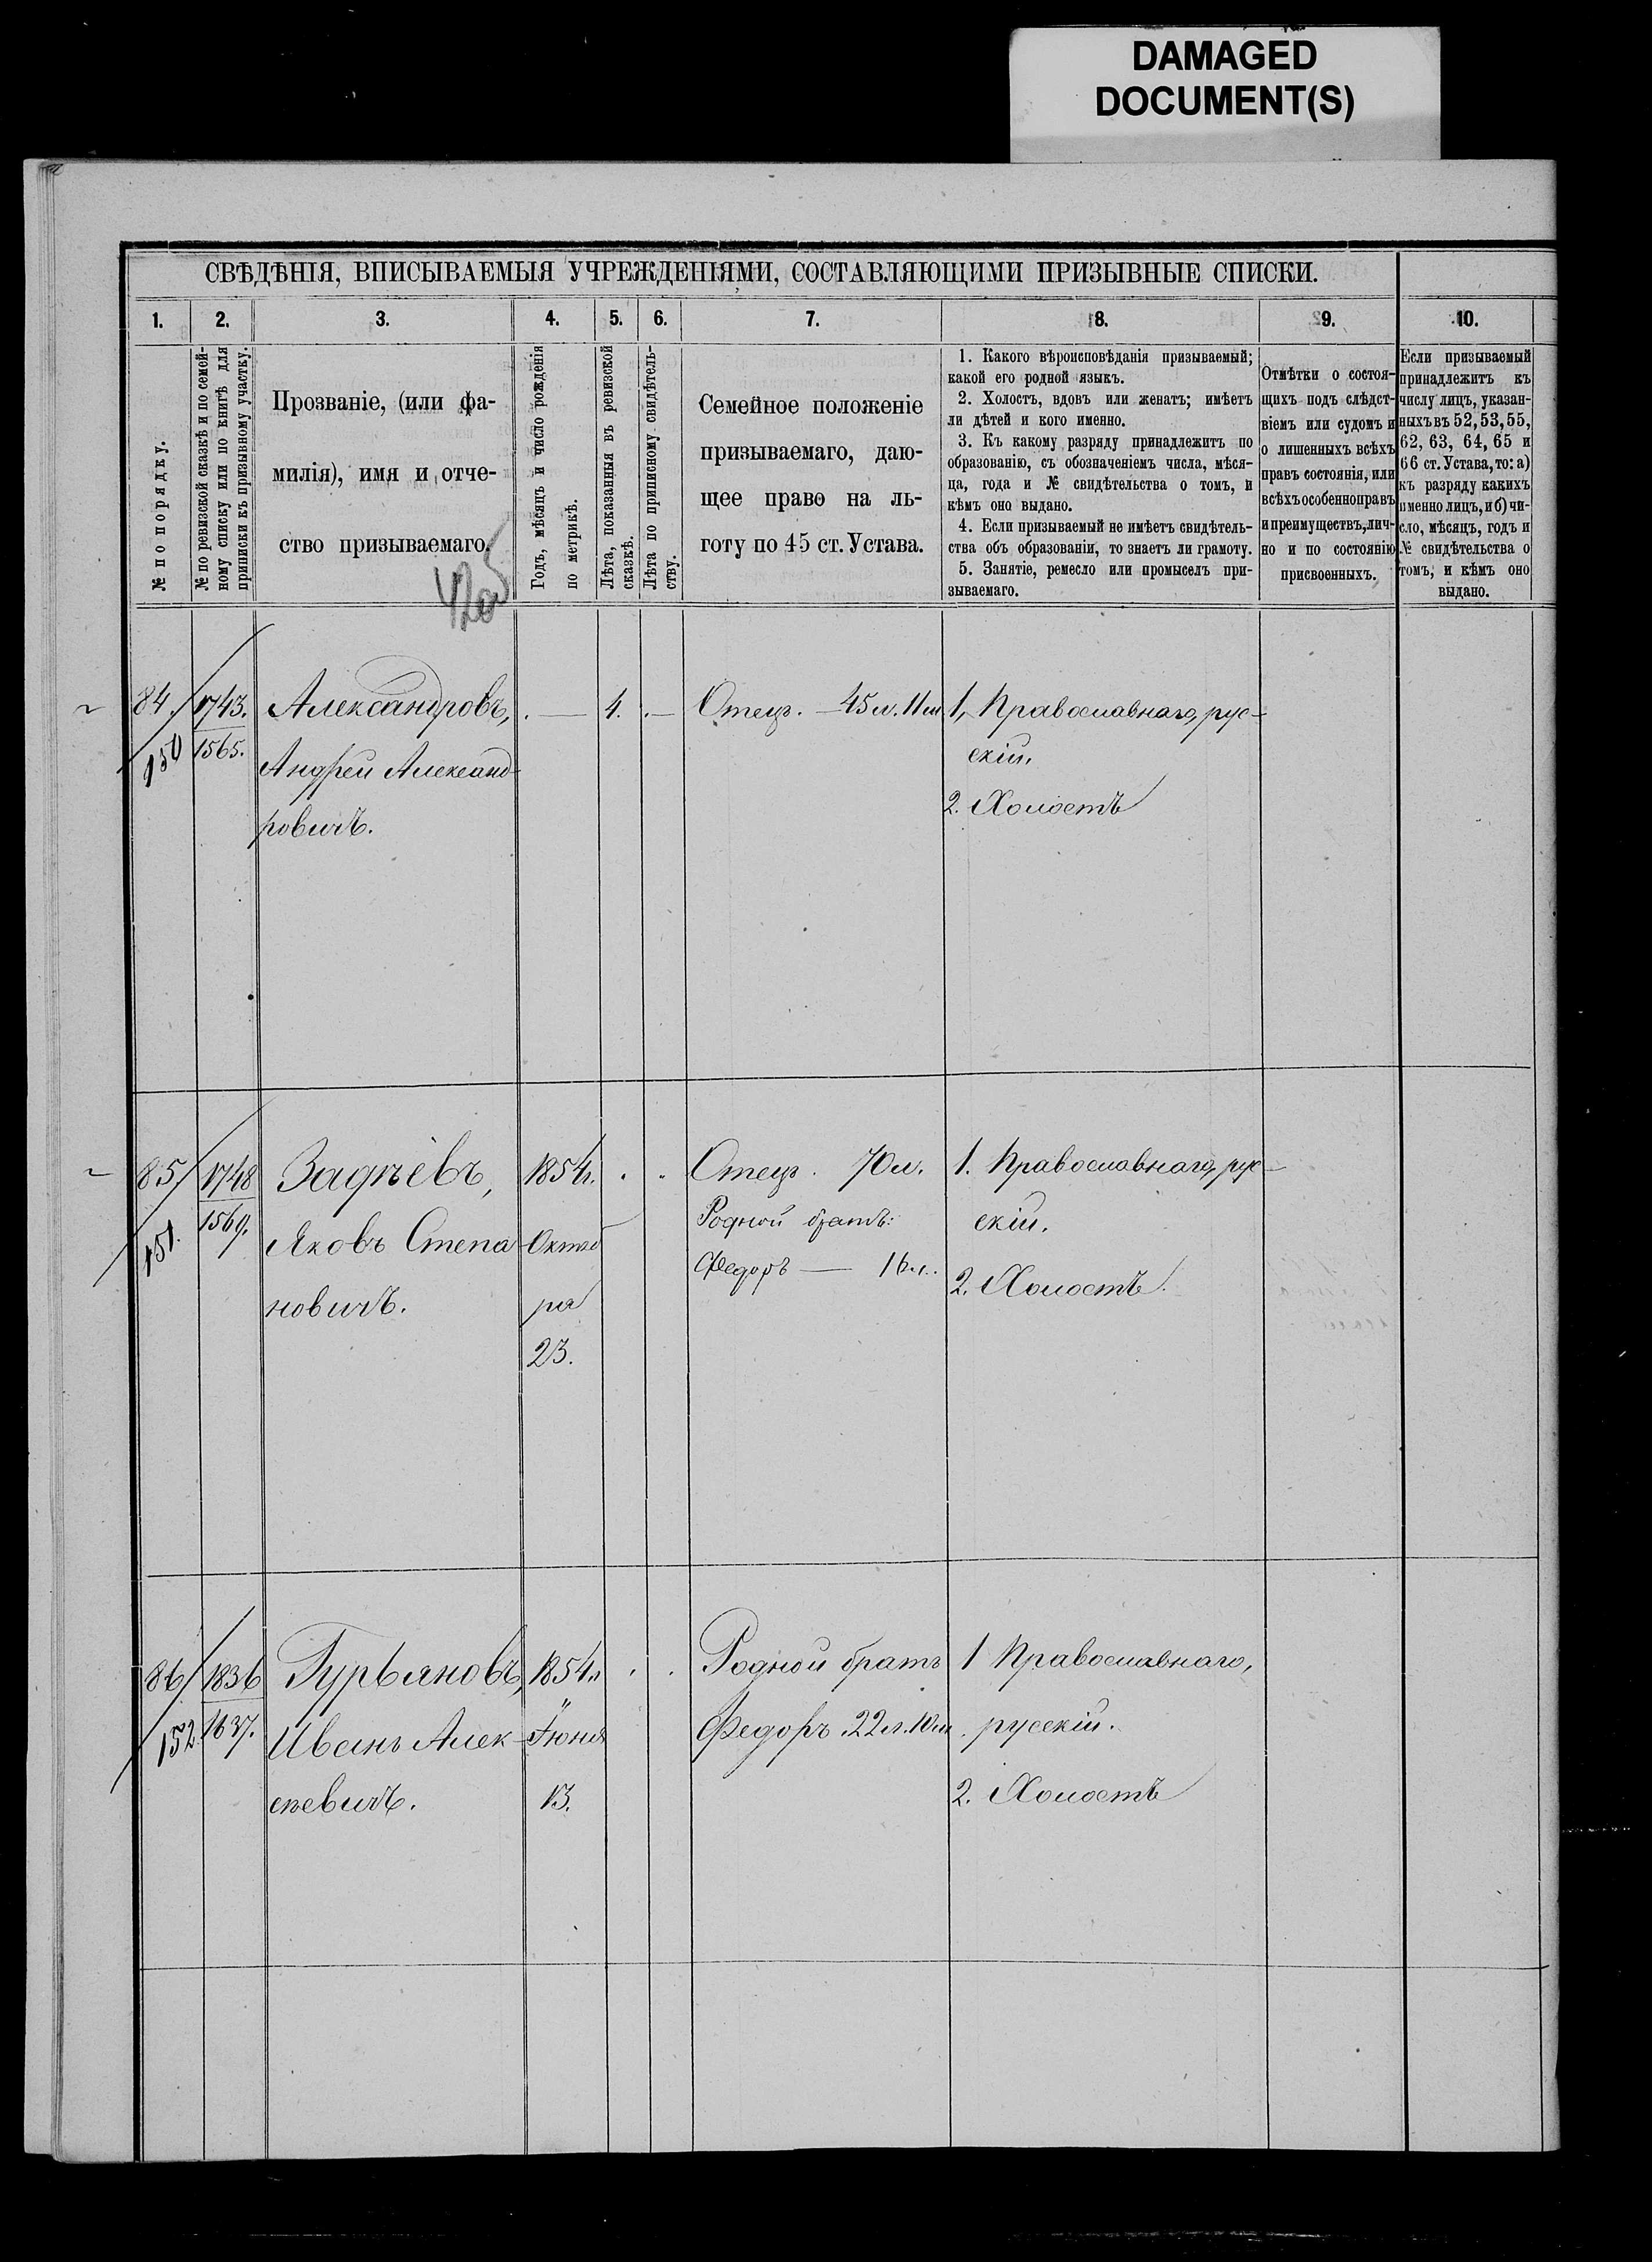 DAMAGED
DOCUMENT(S)
СВѢДѢНІЯ, ВПИСЫВАЕМЫЯ УЧРЕЖДЕНІЯМИ, СОСТАВЛЯЮЩИМИ ПРИЗЫВНЫЕ СПИСКИ.
1. 2. 3. 4. 5. 6. 7. 8. 9. 10.
№ по порядку.
№ по ревизской сказкѣ и по семей-
ному списку или по книгѣ для
приписки къ призывному участку.
Прозваніе, (или фа-
милія), имя и отче-
ство призываемаго.
Годъ, мѣсяцъ и число рожденія
по метрикѣ.
Лѣта, показанныя въ ревизской
сказкѣ.
Лѣта по приписному свидѣтель-
ству.
Семейное положеніе
призываемаго, даю-
щее право на ль-
готу по 45 ст. Устава.
1. Какого вѣроисповѣданія призываемый;
какой его родной языкъ.
2. Холостъ, вдовъ или женатъ; имѣетъ
ли дѣтей и кого именно.
3. Къ какому разряду принадлежитъ по
образованію, съ обозначеніемъ числа, мѣся-
ца, года и № свидѣтельства о томъ, и
кѣмъ оно выдано.
4. Если призываемый не имѣетъ свидѣтель-
ства объ образованіи, то знаетъ ли грамоту.
5. Занятіе, ремесло или промыселъ при-
зываемаго.
Отмѣтки о состоя-
щихъ подъ слѣдст-
віемъ или судомъ и
о лишенныхъ всѣхъ
правъ состоянія, или
всѣхъ особенно правъ
и преимуществъ, лич-
но и по состоянію
присвоенныхъ.
Если призываемый
принадлежитъ къ
числу лицъ, указан-
ныхъ въ 52, 53, 55,
62, 63, 64, 65 и
66 ст. Устава, то: а)
къ разряду какихъ
именно лицъ, и б) чи-
сло, мѣсяцъ, годъ и
№ свидѣтельства о
томъ, и кѣмъ оно
выдано.
84. 1743. Александровъ, . — 4. . — Отецъ. — 45 л. 11 м 1, Православнаго, рус-
150 1565. Андрей Александ-
скій.
ровичъ.
2. Холостъ
85 1748 Задѣевъ, 1854 г. . . Отецъ . 70 л. 1. Православнаго, рус-
151. 1569. Яковъ Степа- Октяб
Родной братъ: скій.
новичъ. ря
Федоръ — 16 л. 2. Холостъ.
23.
86 1836 Гурьяновъ, 1854 . . Родной братъ 1 Православнаго,
152. 1637. Иванъ Алек- Іюня Федоръ. 22 л. 10 м. русскій.
сѣевичъ. 13. 2. Холостъ